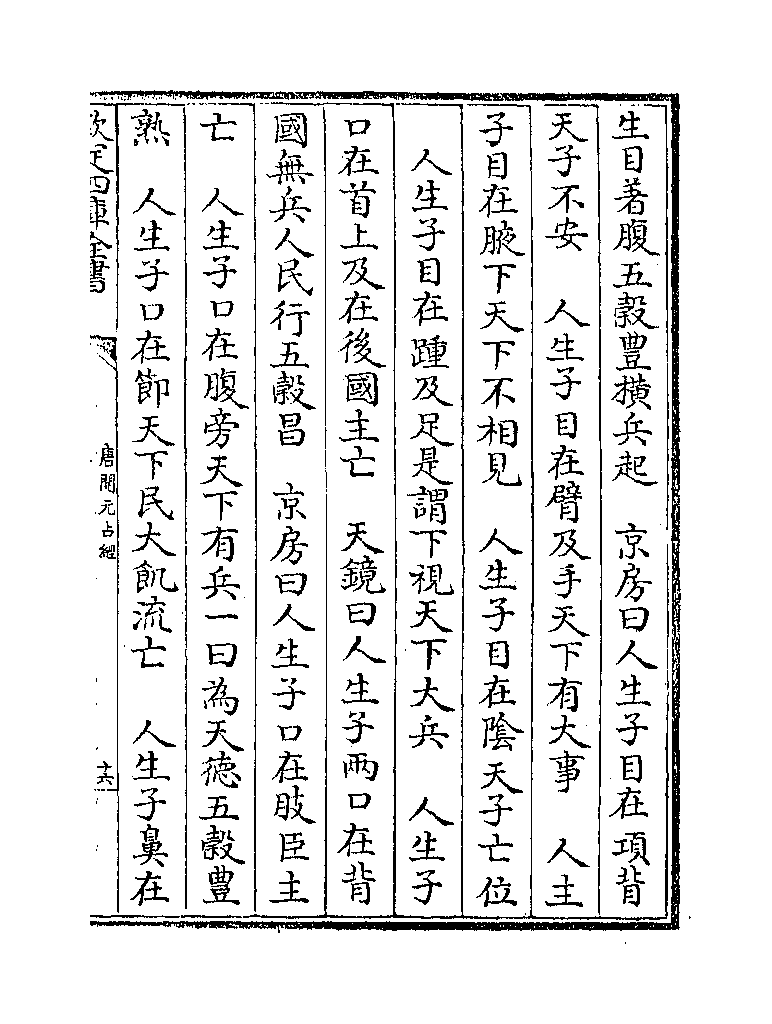 生目著腹五穀豐橫兵起　京房曰人生子目在項背
天子不安　人生子目在臂及手天下有大事　人主
子目在腋下天下不相見　人生子目在陰天子亡位
　人生子目在踵及足是謂下視天下大兵　人生子
口在首上及在後國主亡　天鏡曰人生子兩口在背
國無兵人民行五穀昌　京房曰人生子口在肢臣主
亡　人生子口在腹旁天下有兵一曰為天德五穀豐
熟　人生子口在節天下民大飢流亡　人生子鼻在
欽定四庫全書
唐開元占經
十六